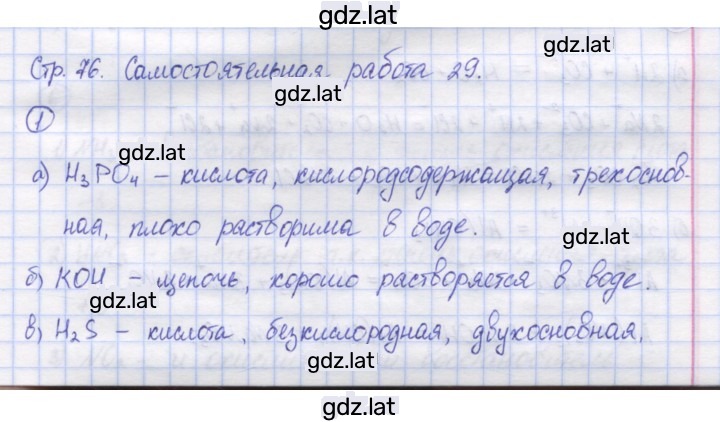 gdz.lat
Стр. 76. Самостоятельная работа 29.
gdz.lat
1
gdz.lat
а) H₃PO₄ – кислота, кислородсодержащая, трехоснов-
ная, плохо растворима в воде.
gdz.lat
б) KOH – щепочь, хорошо растворяется в воде.
gdz.lat
в) H₂S – кислота, безкислородная, двухосновная,
gdz.lat
gdz.lat